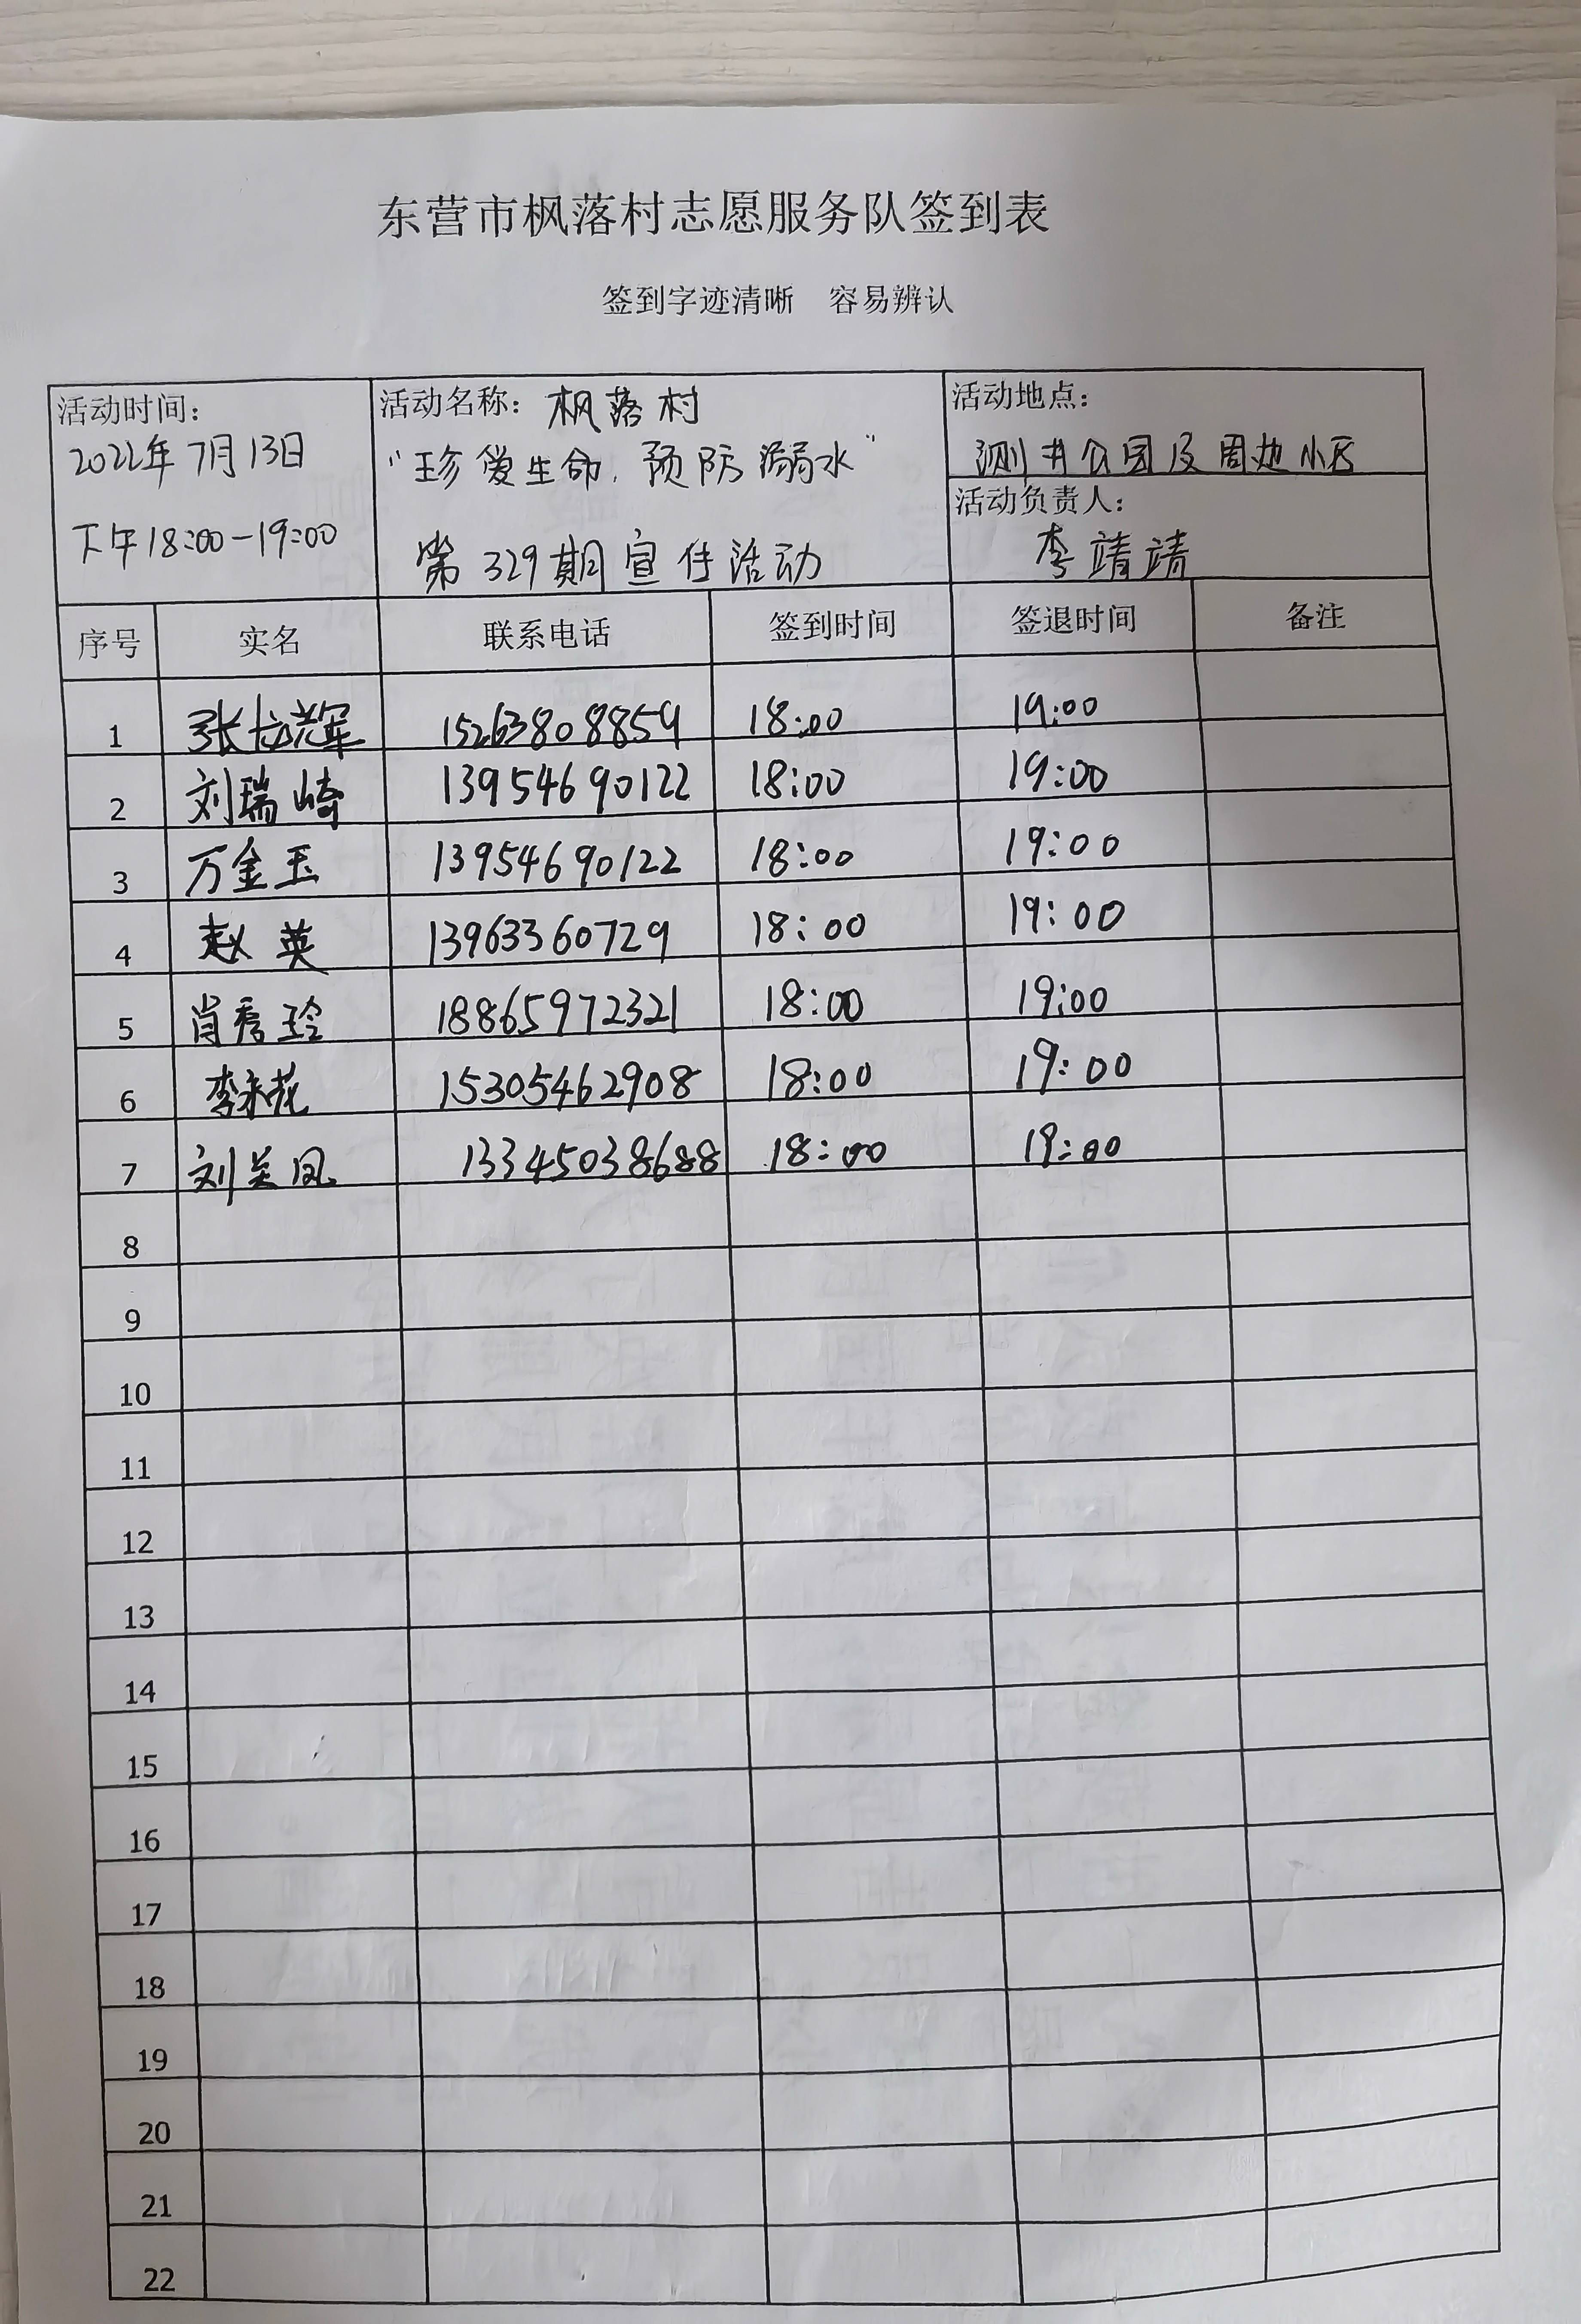 东营市枫落村志愿服务队签到表
签到字迹清晰 容易辨认
活动时间：
2022年7月13日
下午18:00-19:00
活动名称： 枫落村
“珍爱生命，预防溺水”
第329期宣传活动
活动地点：
测井公园及周边小区
活动负责人：
李靖靖
序号 实名 联系电话 签到时间 签退时间 备注
1 张龙辉 15263808859 18:00 19:00
2 刘瑞崎 13954690122 18:00 19:00
3 万金玉 13954690122 18:00 19:00
4 赵英 13963360729 18:00 19:00
5 肖秀玲 18865972321 18:00 19:00
6 李永花 15305462908 18:00 19:00
7 刘美凤 13345038688 18:00 19:00
8
9
10
11
12
13
14
15
16
17
18
19
20
21
22